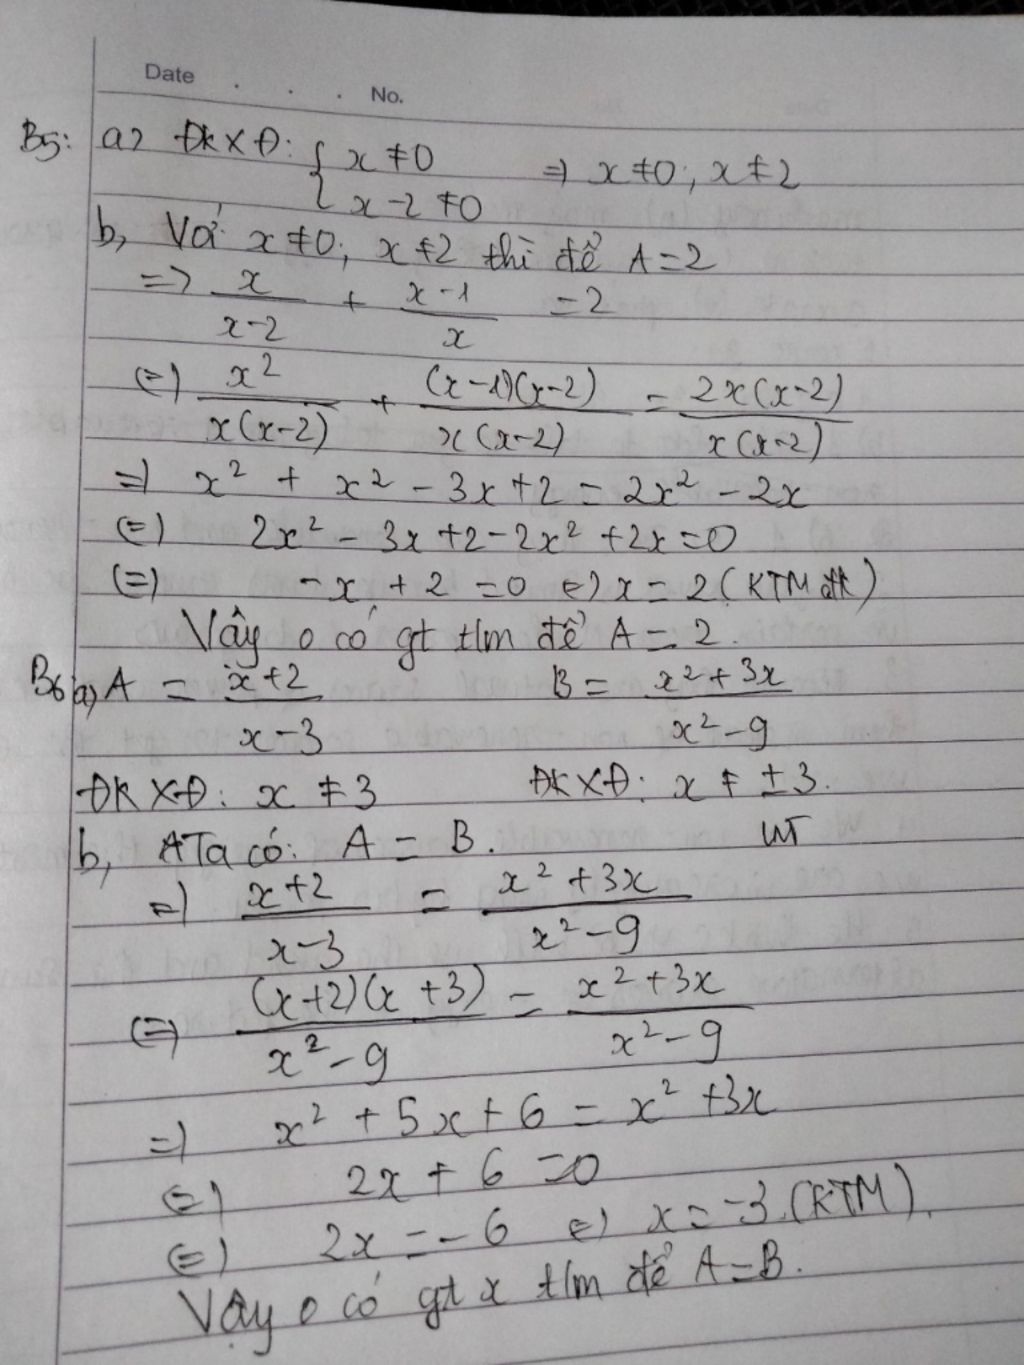 Date . . . No.
B5: a, ĐKXĐ: { x ≠ 0
x - 2 ≠ 0 => x ≠ 0; x ≠ 2
b, Với x ≠ 0; x ≠ 2 thì để A = 2
=> x/(x-2) + (x-1)/x = 2
(=) x²/(x(x-2)) + ((x-1)(x-2))/(x(x-2)) = (2x(x-2))/(x(x-2))
=) x² + x² - 3x + 2 = 2x² - 2x
(=) 2x² - 3x + 2 - 2x² + 2x = 0
(=) - x + 2 = 0 (=) x = 2 (KTM đk)
Vậy o có gt t/m để A = 2.
B6 a, A = (x+2)/(x-3) B = (x² + 3x)/(x² - 9)
ĐKXĐ: x ≠ 3 ĐKXĐ: x ≠ ± 3.
b, Ta có: A = B.
=) (x+2)/(x-3) = (x² + 3x)/(x² - 9)
(=) ((x+2)(x+3))/(x² - 9) = (x² + 3x)/(x² - 9)
=) x² + 5x + 6 = x² + 3x
(=) 2x + 6 = 0
(=) 2x = - 6 (=) x = -3 (KTM).
Vậy o có gt x t/m để A = B.